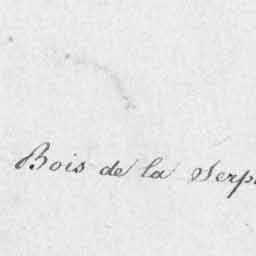 Bois de la Serp